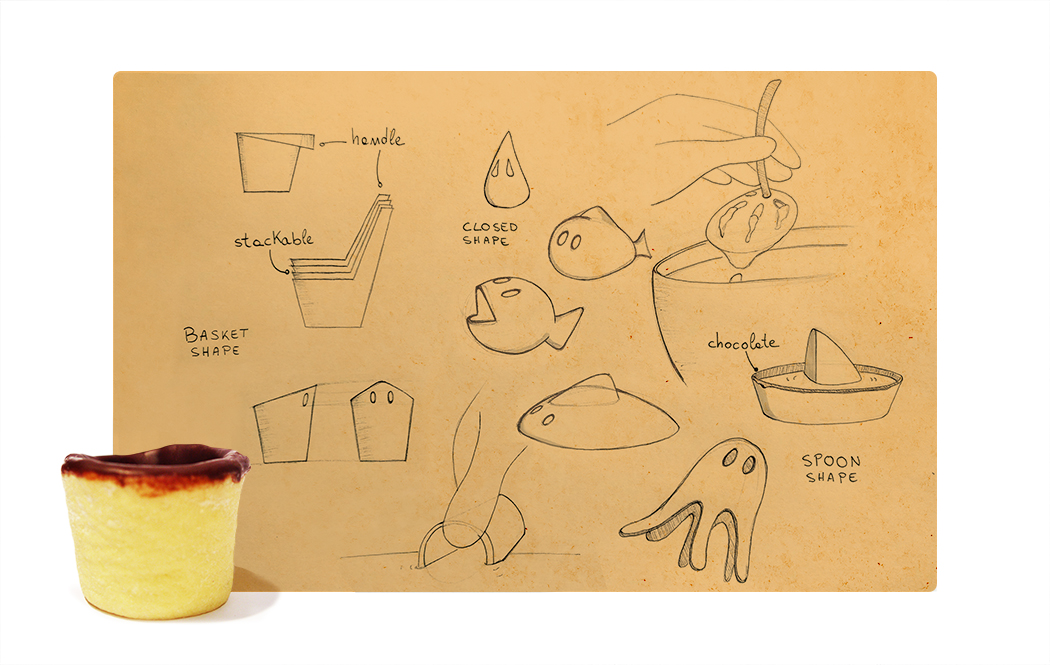 handle
stackable
BASKET
SHAPE
CLOSED
SHAPE
chocolate
SPOON
SHAPE